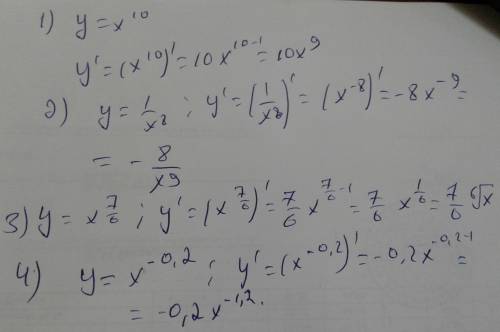 1) y = x¹⁰
y' = (x¹⁰)' = 10x¹⁰⁻¹ = 10x⁹
2) y = 1/x⁸ ; y' = (1/x⁸)' = (x⁻⁸)' = -8x⁻⁹ =
= - 8/x⁹
3) y = x^(7/6) ; y' = (x^(7/6))' = 7/6 x^(7/6 -1) = 7/6 x^(1/6) = 7/6 ⁶√x
4) y = x^(-0,2) ; y' = (x^(-0,2))' = -0,2x^(-0,2-1) =
= -0,2x^(-1,2).